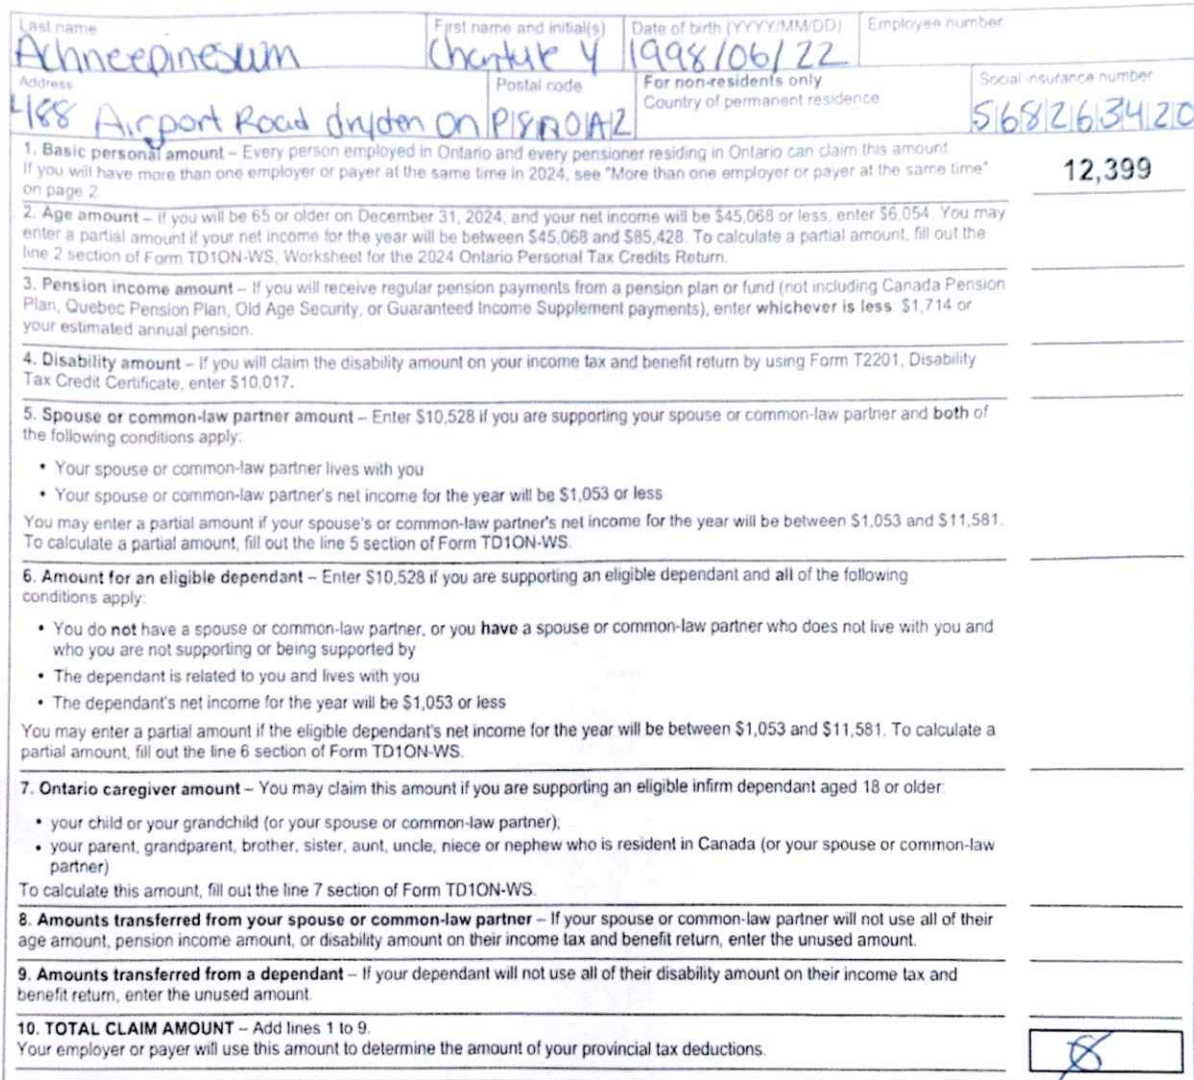 Last name
First name and initial(s)
Date of birth (YYYY/MM/DD)
Employee number
Achneepineskum
Chantule Y
1998/06/22
Address
Postal code
For non-residents only
Country of permanent residence
Social insurance number
488 Airport Road dryden On
P8R0A2
568263420
1. Basic personal amount – Every person employed in Ontario and every pensioner residing in Ontario can claim this amount
If you will have more than one employer or payer at the same time in 2024, see "More than one employer or payer at the same time"
on page 2
12,399
2. Age amount – If you will be 65 or older on December 31, 2024, and your net income will be $45,068 or less, enter $6,054. You may
enter a partial amount if your net income for the year will be between $45,068 and $85,428. To calculate a partial amount, fill out the
line 2 section of Form TD1ON-WS, Worksheet for the 2024 Ontario Personal Tax Credits Return.
3. Pension income amount – If you will receive regular pension payments from a pension plan or fund (not including Canada Pension
Plan, Quebec Pension Plan, Old Age Security, or Guaranteed Income Supplement payments), enter whichever is less $1,714 or
your estimated annual pension.
4. Disability amount – If you will claim the disability amount on your income tax and benefit return by using Form T2201, Disability
Tax Credit Certificate, enter $10,017.
5. Spouse or common-law partner amount – Enter $10,528 if you are supporting your spouse or common-law partner and both of
the following conditions apply:
• Your spouse or common-law partner lives with you
• Your spouse or common-law partner's net income for the year will be $1,053 or less
You may enter a partial amount if your spouse's or common-law partner's net income for the year will be between $1,053 and $11,581.
To calculate a partial amount, fill out the line 5 section of Form TD1ON-WS.
6. Amount for an eligible dependant – Enter $10,528 if you are supporting an eligible dependant and all of the following
conditions apply:
• You do not have a spouse or common-law partner, or you have a spouse or common-law partner who does not live with you and
who you are not supporting or being supported by
• The dependant is related to you and lives with you
• The dependant's net income for the year will be $1,053 or less
You may enter a partial amount if the eligible dependant's net income for the year will be between $1,053 and $11,581. To calculate a
partial amount, fill out the line 6 section of Form TD1ON-WS.
7. Ontario caregiver amount – You may claim this amount if you are supporting an eligible infirm dependant aged 18 or older:
• your child or your grandchild (or your spouse or common-law partner);
• your parent, grandparent, brother, sister, aunt, uncle, niece or nephew who is resident in Canada (or your spouse or common-law
partner)
To calculate this amount, fill out the line 7 section of Form TD1ON-WS.
8. Amounts transferred from your spouse or common-law partner – If your spouse or common-law partner will not use all of their
age amount, pension income amount, or disability amount on their income tax and benefit return, enter the unused amount.
9. Amounts transferred from a dependant – If your dependant will not use all of their disability amount on their income tax and
benefit return, enter the unused amount.
10. TOTAL CLAIM AMOUNT – Add lines 1 to 9.
Your employer or payer will use this amount to determine the amount of your provincial tax deductions.